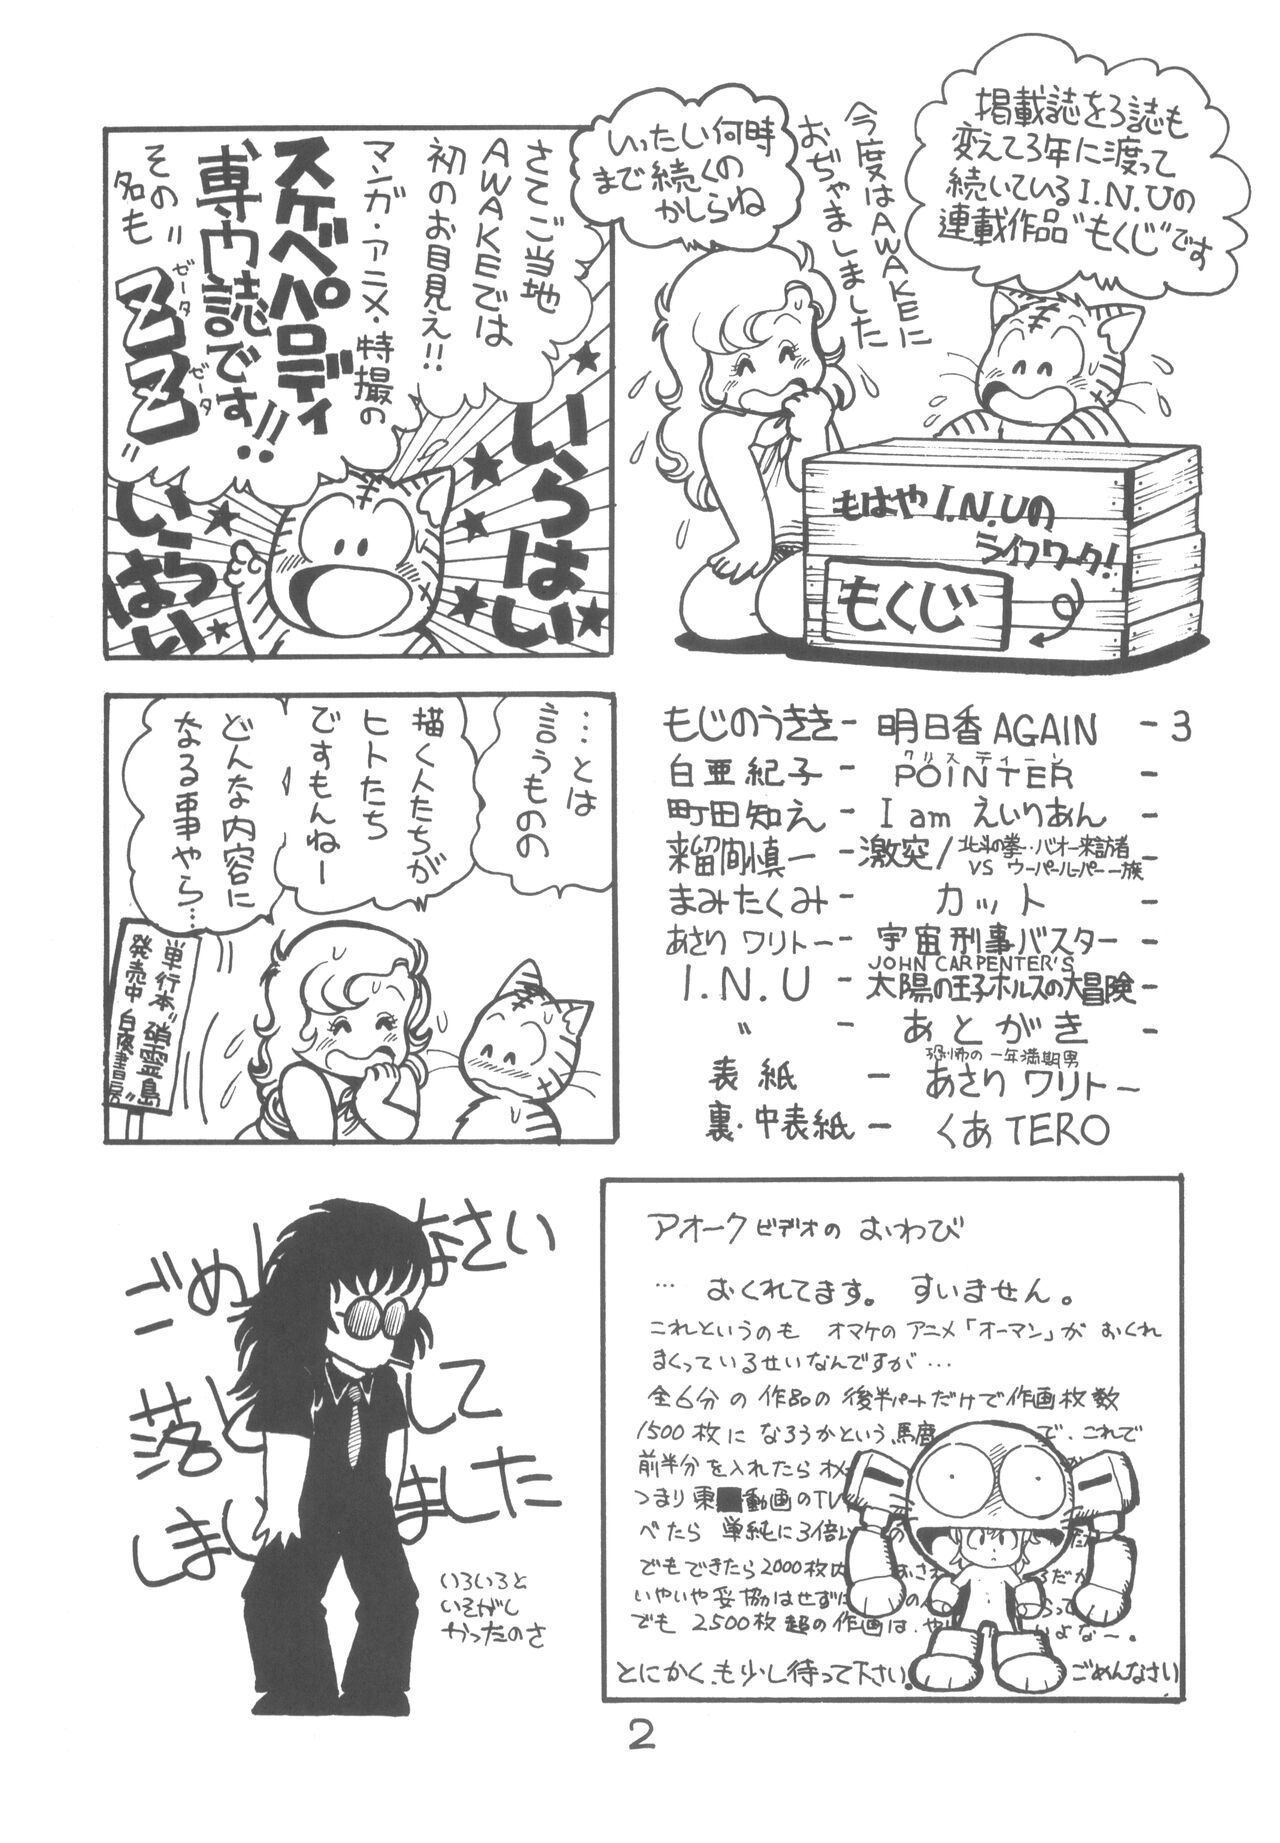 掲載誌を3誌も
変えて3年に渡って
続いているI.N.Uの
連載作品"もくじ"です
今度はAWAKEに
おぢゃましました
いったい何時
まで続くの
かしらね
もはやI.N.Uの
ライフワーク!
もくじ
さてご当地
AWAKEでは
初のお目見え!!
マンガ・アニメ・特撮の
スケベパロディ
専門誌です!!
その
名も
"ZZ"
ゼータ
ゼータ
いらはい
いらはい
…とは
言うものの
描く人たちが
ヒトたち
ですもんねー
どんな内容に
なる事やら…
単行本"硝霊島"
発売中 白夜書房
もじのうきき- 明日香AGAIN -3
クリスティーン
白亜紀子- POINTER -
町田知え- I am えいりあん -
来留間慎一-激突/北斗の拳・バオー来訪者
VS ウーパールーパー一族-
まみたくみ- カット -
あさりワリトー- 宇宙刑事バスター -
JOHN CARPENTER'S
I.N.U - 太陽の王子ホルスの大冒険-
〃 - あとがき -
恐怖の一年満期男
表紙 - あさりワリトー
裏・中表紙- くあTERO
ごめんなさい
落として
しまいました
いろいろと
いそがし
かったのさ
アオークビデオの おわび
… おくれてます。 すいません。
これというのも オマケのアニメ「オーマン」が おくれ
まくっているせいなんですが…
全6分の作品の後半パートだけで作画枚数
1500枚に なろうかという、馬鹿 で、これで
前半分を入れたら オメ
つまり東 動画のTV
べたら 単純に3倍 の
でもできたら2000枚内 おさ るだか
いやいや妥協はせずに の って
でも 2500枚超の作画は、や よな〜。
とにかく、も少し待って下さい。 ごめんなさい
2